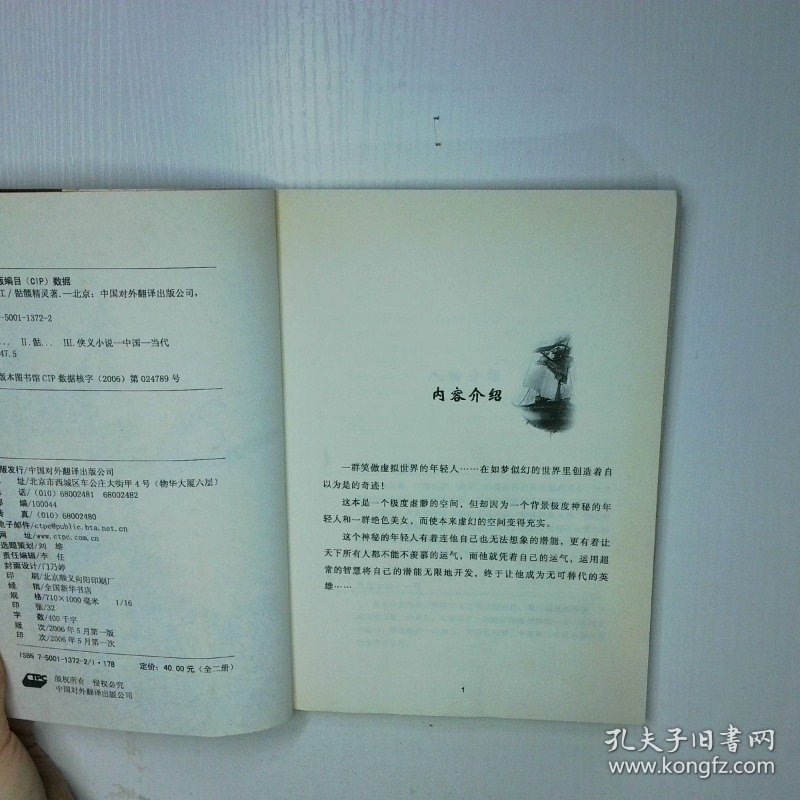 版编目(CIP)数据
江/骷髅精灵著.—北京:中国对外翻译出版公司,
-5001-1372-2
... Ⅱ.骷... Ⅲ.侠义小说—中国—当代
47.5
版本图书馆CIP数据核字(2006)第024789号
版发行/中国对外翻译出版公司
址/北京市西城区车公庄大街甲4号(物华大厦六层)
电 话/(010)68002481 68002482
邮 编/100044
传 真/(010)68002480
电子邮件/ctpc@public.bta.net.cn
网 址/www.ctpc.com.cn
选题策划/刘 雄
责任编辑/李 任
封面设计/门乃婷
印 刷/北京顺义向阳印刷厂
经 销/全国新华书店
规 格/710×1000毫米 1/16
印 张/32
字 数/400千字
版 次/2006年5月第一版
印 次/2006年5月第一次
ISBN 7-5001-1372-2/I·178 定价:40.00元(全二册)
CTPC
版权所有 侵权必究
中国对外翻译出版公司
内容介绍
一群笑傲虚拟世界的年轻人……在如梦似幻的世界里创造着自
以为是的奇迹!
这本是一个极度虚渺的空间,但却因为一个背景极度神秘的年
轻人和一群绝色美女,而使本来虚幻的空间变得充实。
这个神秘的年轻人有着连他自己也无法想象的潜能,更有着让
天下所有人都不能不羡慕的运气,而他就凭着自己的运气,运用超
常的智慧将自己的潜能无限地开发,终于让他成为无可替代的英
雄……
1
孔夫子旧书网
www.kongfz.com